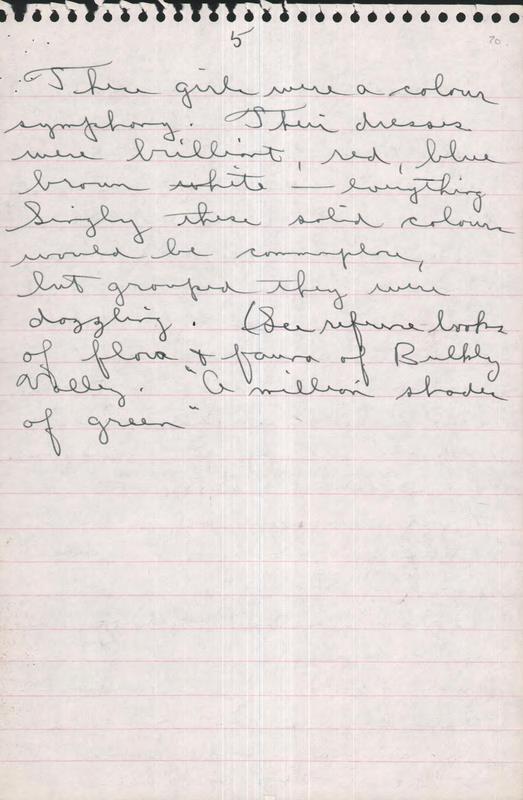 5
70.
These girls were a colour
symphony. Their dresses
were brilliant, red, blue
brown white — everything
Singly these solid colours
would be commonplace,
but grouped they were
dazzling. (See refrence books
of flora + fauna of Bulkly
Valley. "A million shades
of green"